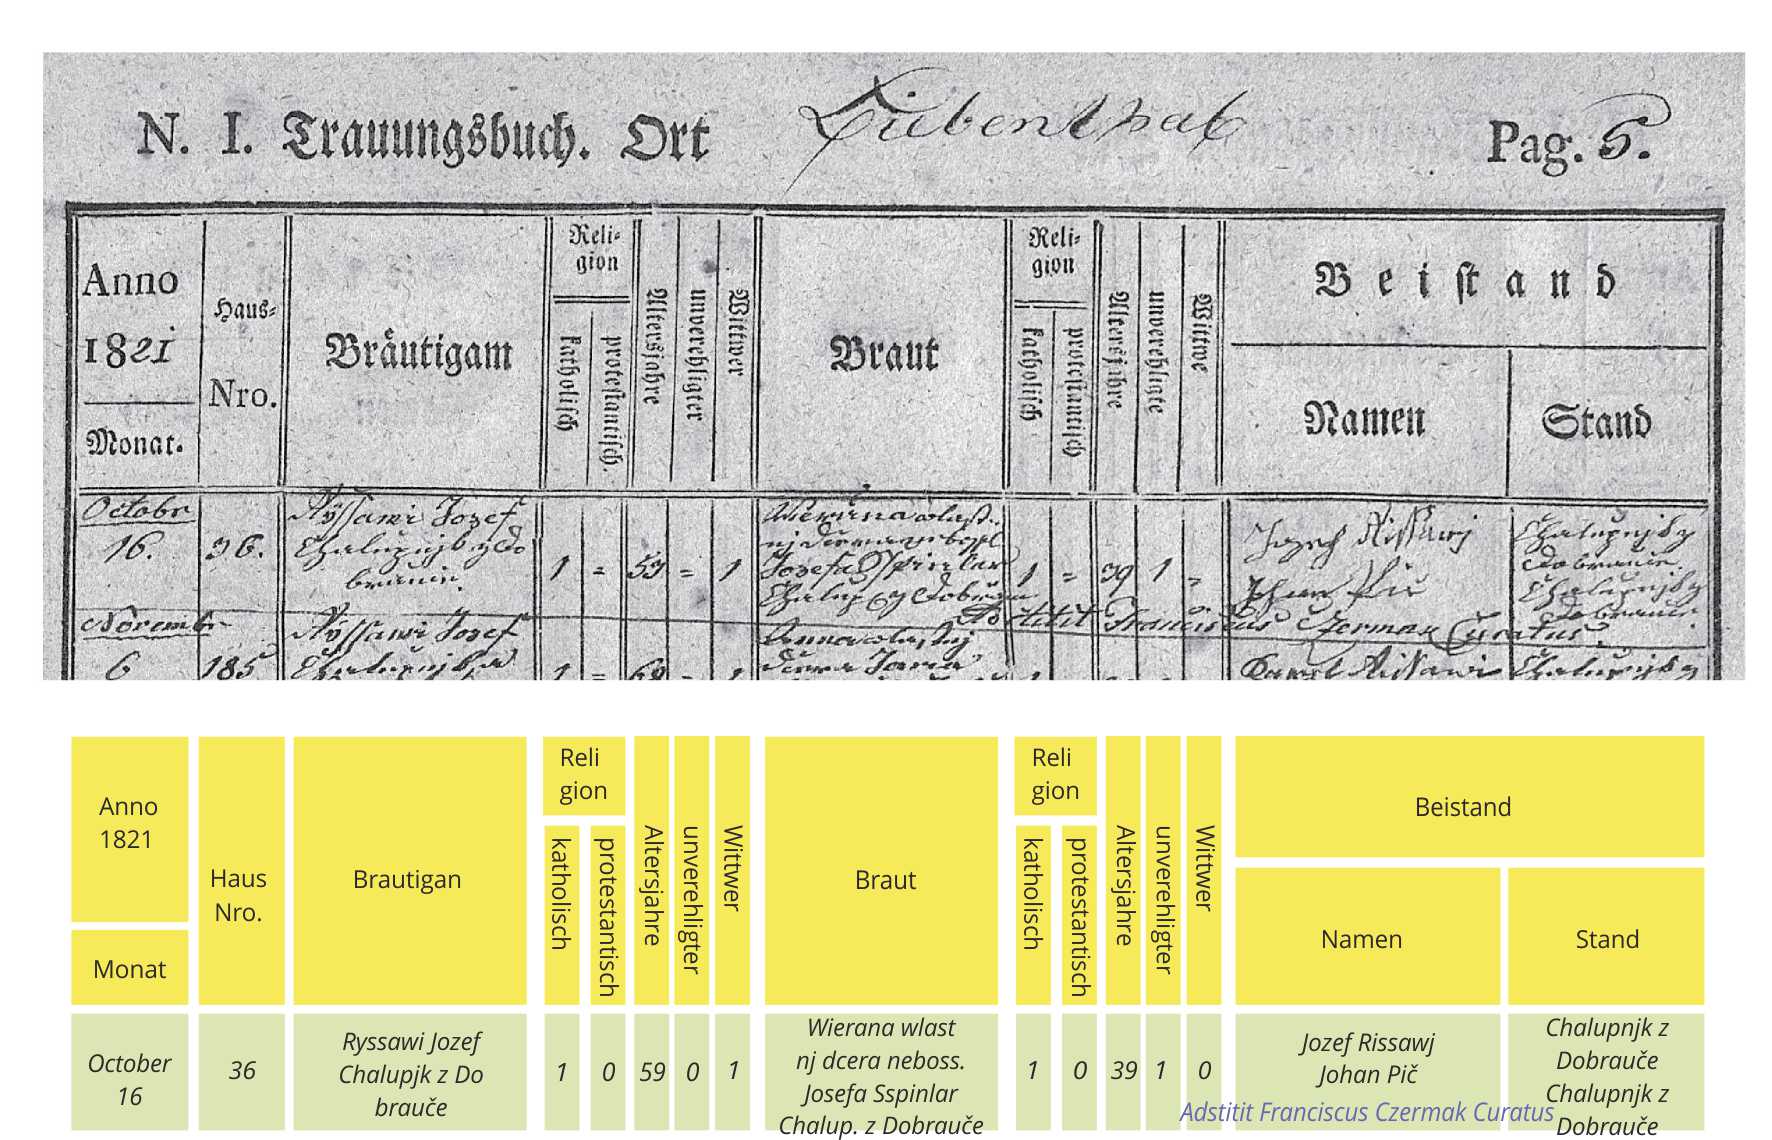 N. I. Trauungsbuch. Ort Liebenthal Pag. 5.
Anno
1821
Monat.
Haus-
Nro.
Bräutigam
Reli-
gion
katholisch
protestantisch.
Altersjahre
unverehligter
Wittwer
Braut
Reli-
gion
katholisch
protestantisch
Altersjahre
unverehligte
Wittwe
Beistand
Namen
Stand
Octobr
16.
36.
Ryssawi Jozef
Chalupnjk z Do
1 - 59 - 1
Jozefa Sspinlar
1 - 39 1 -
Jozef Rissawj
Johan Pič
Chalupnjk z
Dobrauče
Chalupnjk z
Dobrauče.
Adstitit Franciscus Czermak Curatus
Novembr
6
185
Ryssawi Jozef
Anna wlastnj
dcera
Karel Rissawi
Chalupnjk z
Anno
1821
Monat
Haus
Nro.
Brautigan
Reli
gion
katholisch
protestantisch
Altersjahre
unverehligter
Wittwer
Braut
Reli
gion
katholisch
protestantisch
Altersjahre
unverehligter
Wittwer
Beistand
Namen
Stand
October
16
36
Ryssawi Jozef
Chalupjk z Do
brauče
1 0 59 0 1
Wierana wlast
nj dcera neboss.
Josefa Sspinlar
Chalup. z Dobrauče
1 0 39 1 0
Jozef Rissawj
Johan Pič
Chalupnjk z
Dobrauče
Chalupnjk z
Dobrauče
Adstitit Franciscus Czermak Curatus